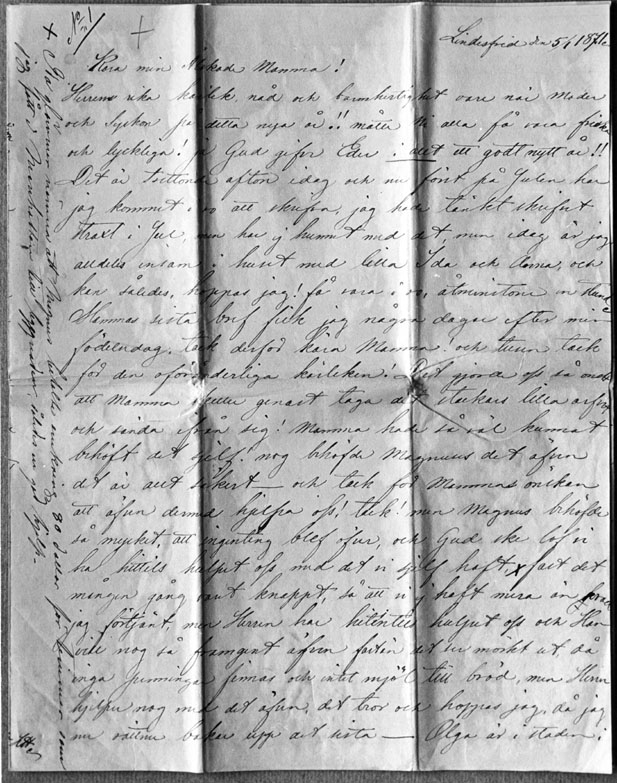 No 1
Lindesfrid den 5/1 187
Kära min Mamma!
Herrens rika kärlek, nåd och barmhertighet vare när Moder
och syskon på detta nya år!! måtte vi alla få vara friska
och lyckliga! ja Gud gifve Eder i allt ett godt nytt år!!
Det är trettonde afton idag och nu först på Julen har
jag kommit i ro att skrifva, jag hade tänkt skrifvit
straxt i Jul, men har ej hunnit med det men idag är jag
alldeles ensam i huset med lilla Ida och Anna, och
kan således, hoppas jag! få vara i ro, åtminstone en stund
Mammas sista bref fick jag några dagar efter min
födelsedag, tack derför kära Mamma och tusen tack
för den oföränderliga kärleken! Det gjorde oss så ondt
att Mamma skulle genast taga det stackars lilla arfvet
och sända ifrån sig! Mamma hade så väl kunnat
behöft det sjelf! nog behöfde Magnus det äfven
det är allt säkert — och tack för Mammas önskan
att äfven dermed hjelpa oss! tack! men Magnus behöfde
så mycket, att ingenting blef öfver, och Gud ske lof vi
ha hittils hulpit oss med det vi sjelf haft, x fast det
mången gång varit knappt, så att vi ej haft mera än
jag förtjent, men Herren har hitintills hulpit oss och Han
vill nog så framgent äfven fastän det ser mörkt ut, då
inga penningar finnas och intet mjöl till bröd, men Herren
hjelper nog med det äfven, det tror och hoppas jag, då jag
nu bakar upp det sista — Olga är i staden i
x Jag glömmer nämna att Magnus betalte omkring 30 dollar för